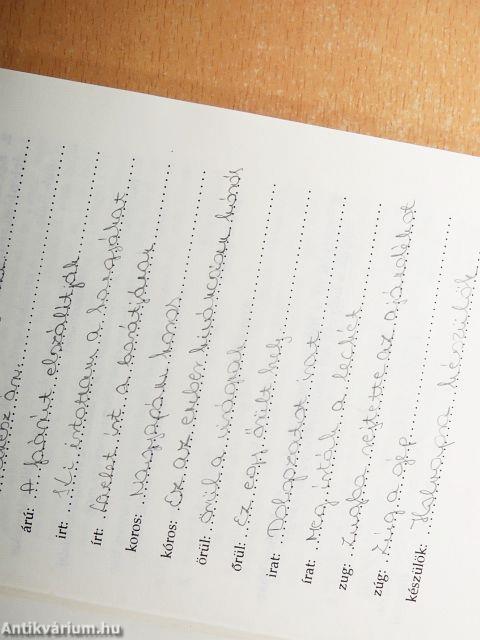 árú: A faárút elszállítják
irt: Ki irtottam a
írt: Levelet írt a barátjának
koros: Nagyapám koros
kóros: Ez az ember kóros
örül: Örül a virágnak
őrül: Ez egy őrült hely
irat: Dolgozatot irat
írat: Meg írták a leckét
zug: Zugba rejtette az ajándékot
zúg: Zúg a gép
készülök: Holnapra készülök
Antikvárium.hu